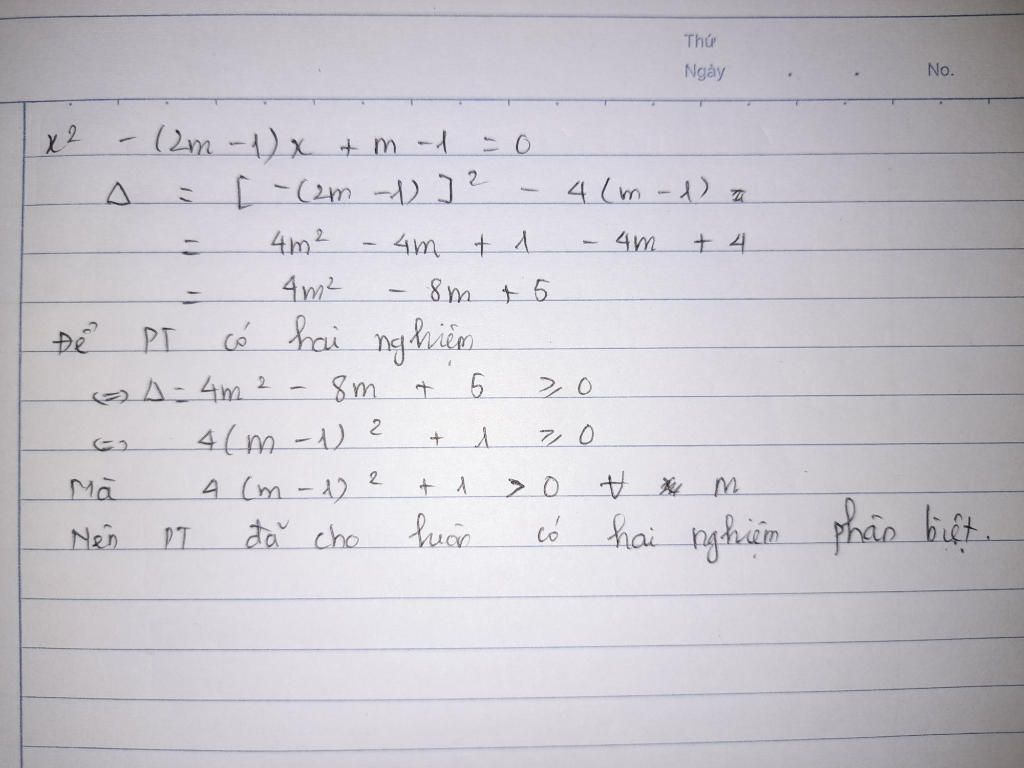 Thứ
Ngày . . No.
x² - (2m - 1)x + m - 1 = 0
Δ = [-(2m - 1)]² - 4(m - 1) =
= 4m² - 4m + 1 - 4m + 4
= 4m² - 8m + 5
Để PT có hai nghiệm
⇔ Δ = 4m² - 8m + 5 ⩾ 0
⇔ 4(m - 1)² + 1 ⩾ 0
Mà 4(m - 1)² + 1 > 0 ∀ m
Nên PT đã cho luôn có hai nghiệm phân biệt.